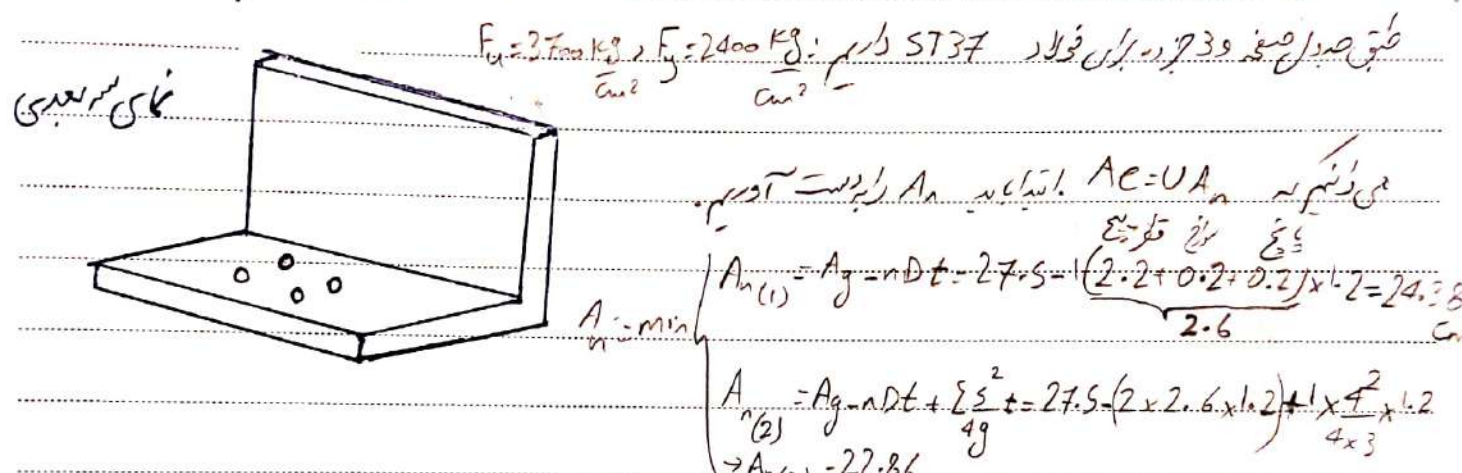 طبق جدول صفحه 3 جزوه برای فولاد ST37 داریم : Fy=2400 kg/cm² , Fu=3700 kg/cm²
نمای سه بعدی
می دانیم که Ae=UAn . ابتدا باید An را بدست آوریم.
پیچ سوراخ
An(1) = Ag-nDt = 27.5-1(2.2+0.2+0.2)×1.2=24.38
2.6
An=min
An(2) = Ag-nDt + Σ s²/4g t = 27.5-(2×2.6×1.2)+1×4²/4×3×1.2
→An =22.86